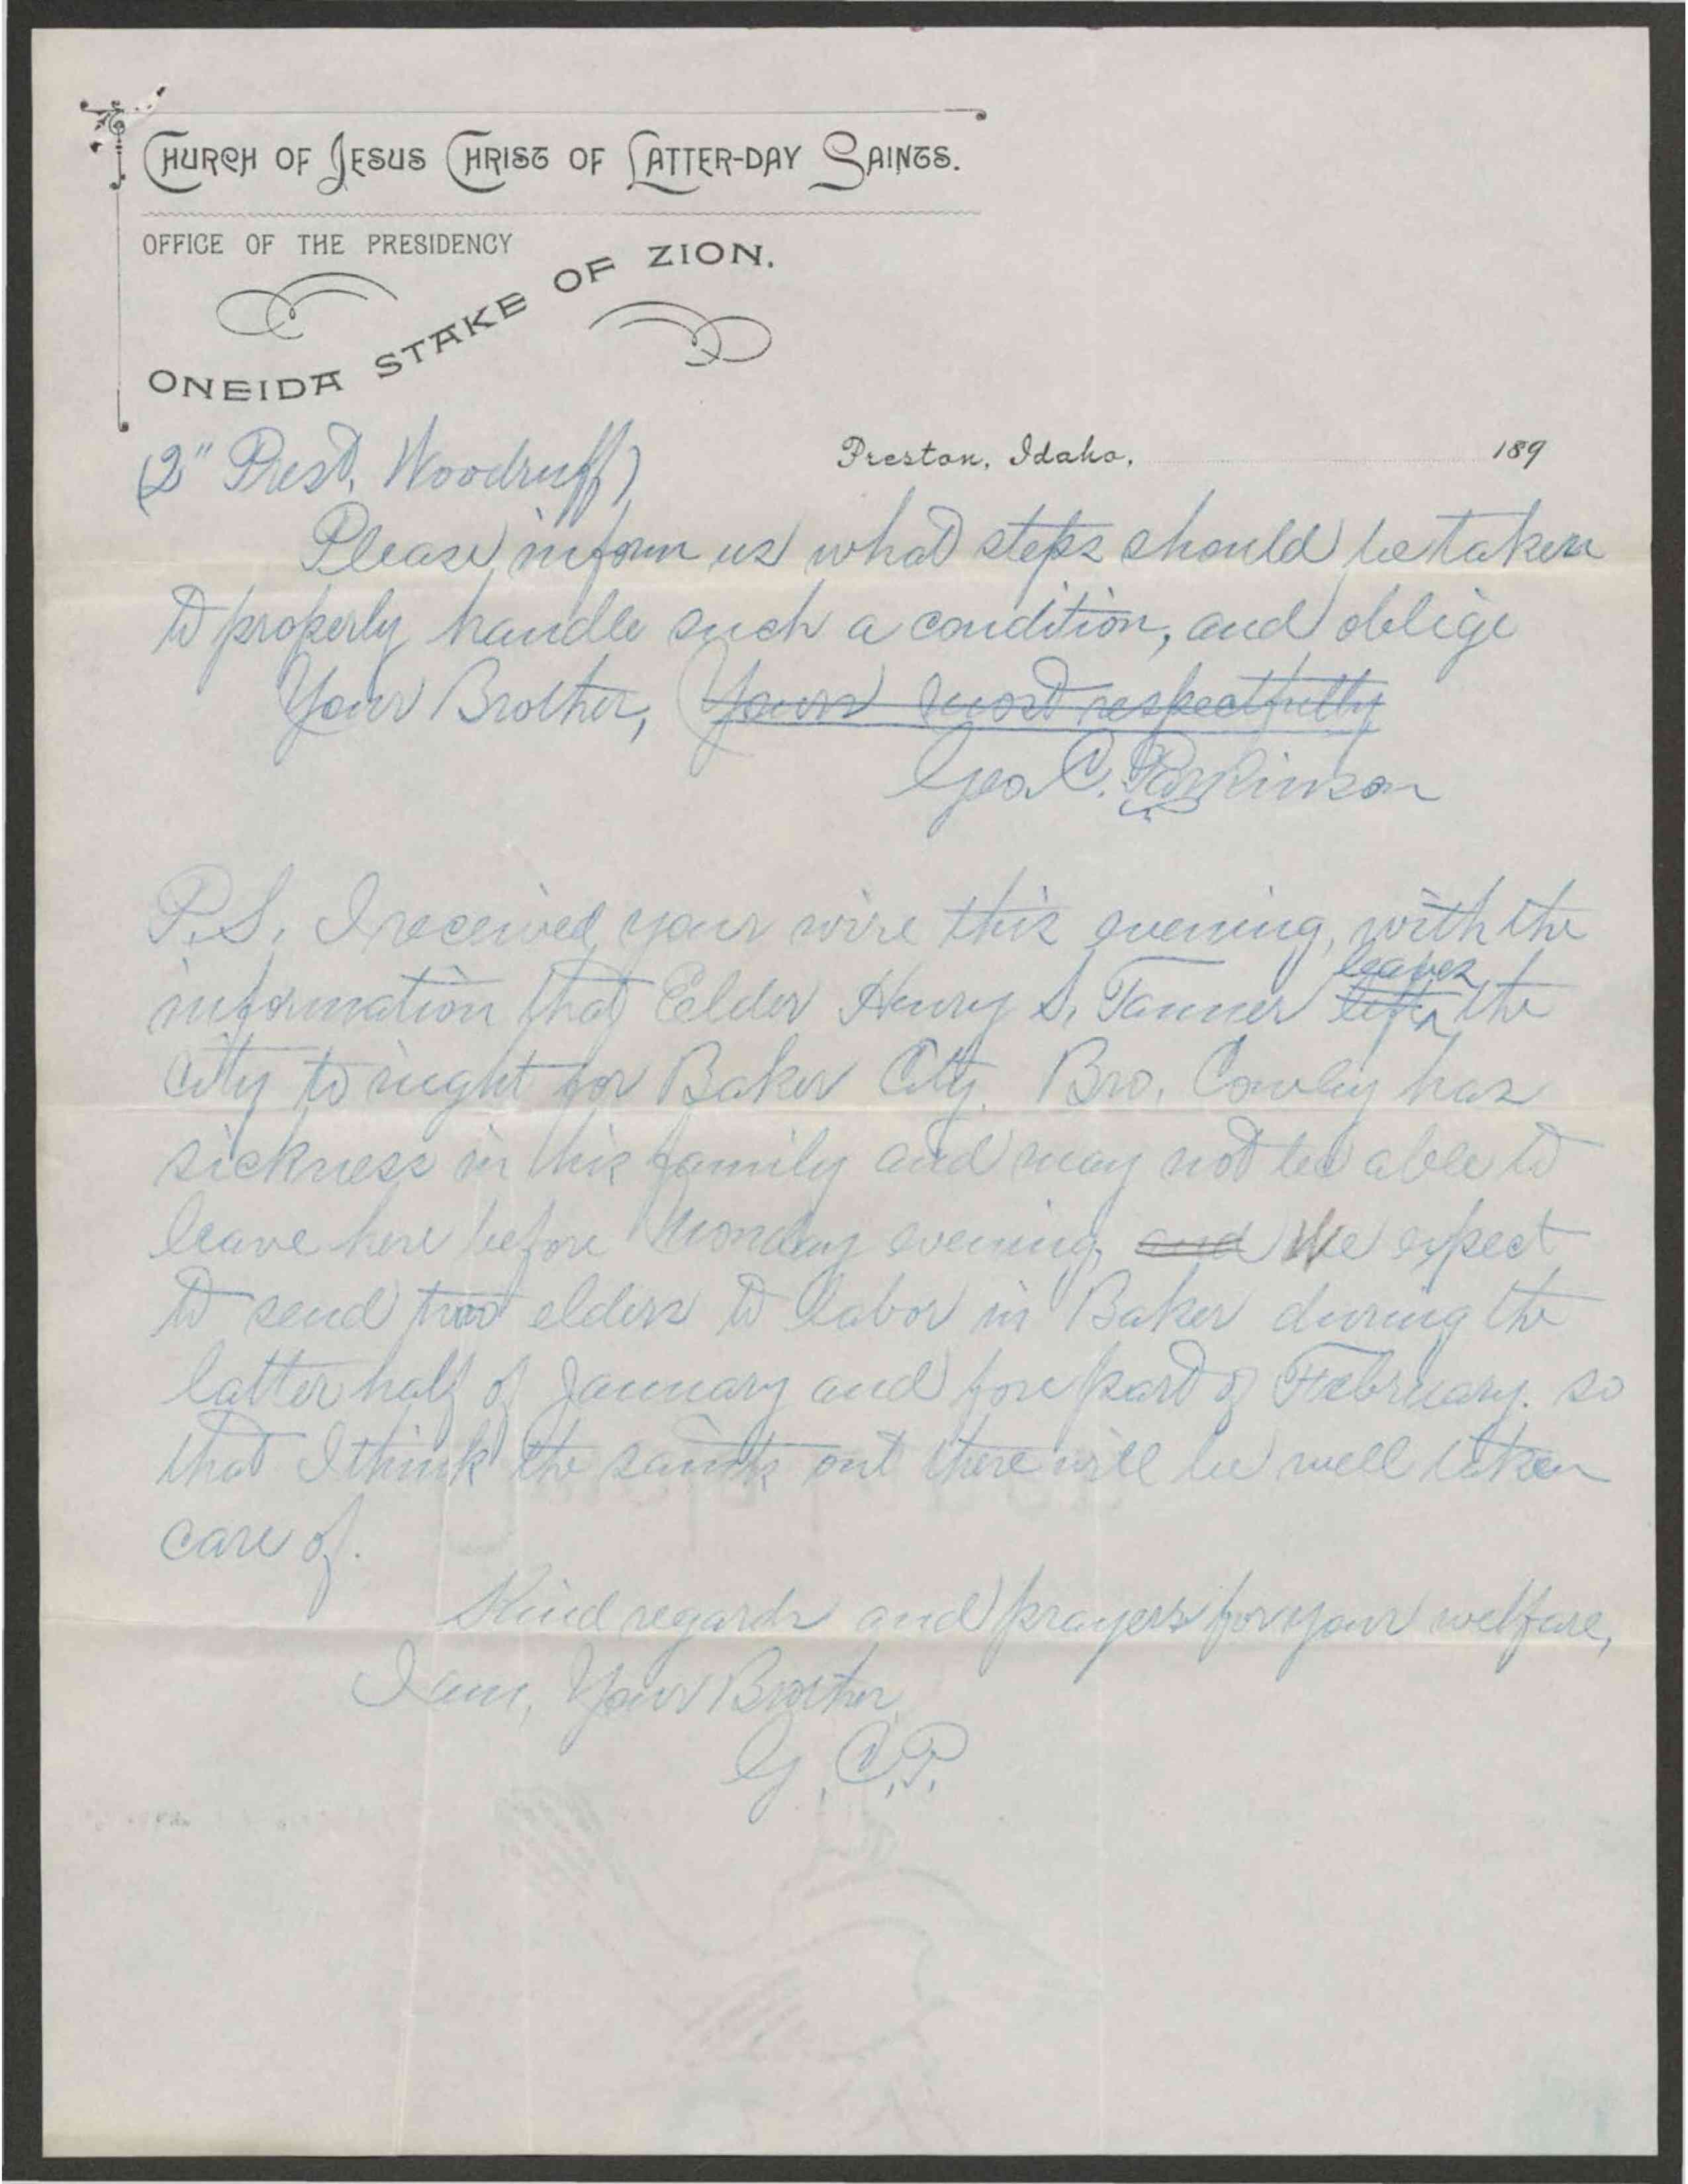 CHURCH OF JESUS CHRIST OF LATTER-DAY SAINTS.
OFFICE OF THE PRESIDENCY
ONEIDA STAKE OF ZION.
Preston, Idaho, 189
(2" Prest. Woodruff)
Please inform us what steps should be taken
to properly handle such a condition, and oblige
Your Brother, Yours most respectfully
Geo. C. Parkinson
P.S. I received your wire this evening, with the
information that Elder Henry S. Tanner left leaves the
City to night for Baker City. Bro. Cowley has
sickness in his family and may not be able to
leave here before Monday evening, and We expect
to send two elders to labor in Baker during the
latter half of January and fore part of February. so
that I think the saints out there will be well taken
care of.
Kind regards and prayers for your welfare,
I am, Your Brother,
G. C. P.